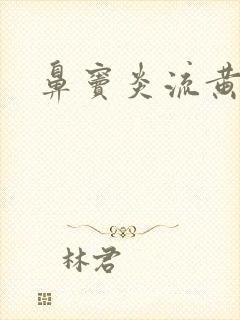 鼻窦炎流黄
林君